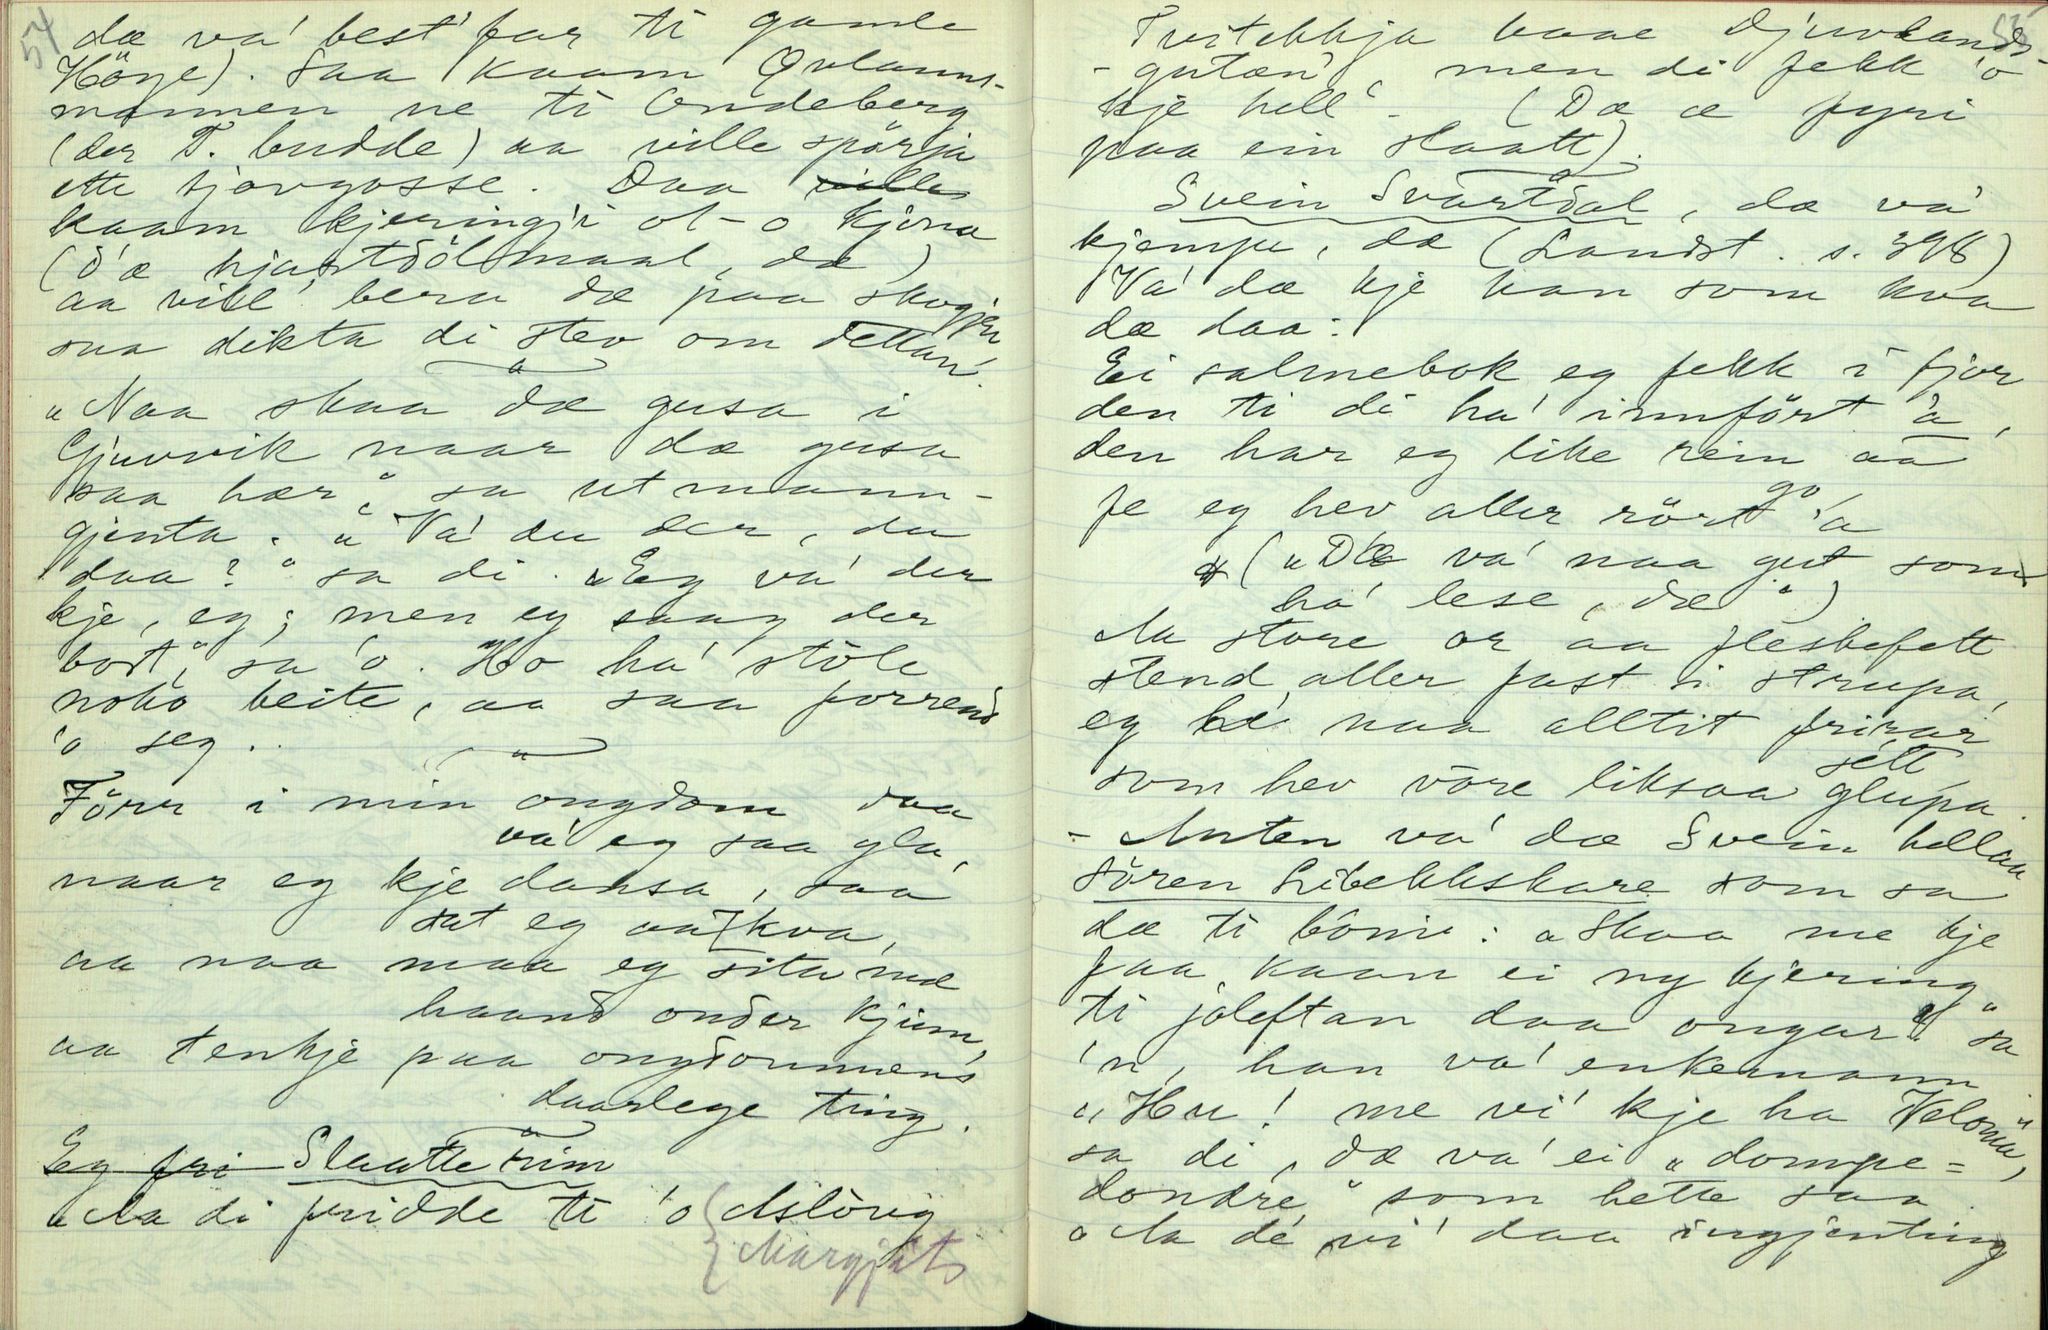 54
dæ va' best'far ti gamle
Höye). Saa kaam Qvlanns-
mannen ne ti Ondeberg
(der T. budde) aa ville spörja
ette tjovgosse. Daa ville
kaam kjeringji ot - o kjöna
(d'æ hjartdölsmaal, dæ)
aa vill' bera dæ paa skogjen
saa dikta di stev om dettan'.
„Naa skaa dæ gusa i
Gjuvvik naar dæ gusa
saa hær", sa utmann-
gjenta. „Va' du der, du
daa?" sa di. „Eg va' der
kje, eg; men eg saag der
bort", sa 'o. Ho ha' stöle
noko beite, aa saa forrend
'o seg.
Förr i min ongdom daa
va' eg saa gla',
naar eg kje dansa, saa
sat eg aa kva,
aa naa maa eg sita mæ
haand onder kjinn,
aa tenkje paa ongdommens
daarlege ting.
Eg fri Slaatterim
„Aa di fridde ti 'o { Aslaug
{ Margjit
55
Tvitekkja baae Djuvlands-
- gutan', men di fekk 'o
kje hell'. - (Dæ æ fyri
paa ein slaatt).
Svein Svartdal, dæ va'
kjempe, dæ (Landst. s. 398)
Va' dæ kje han som kva
dæ daa:
Ei salmebok eg fekk i fjor
den ti di ha' innfört 'a,
den har eg like rein aa
go',
fe eg hev aller rört 'a
("Dæ va' naa gut som
ha' lese, dæ")
Aa store or aa fleskefett
stend aller fast i strupa,
eg hé naa alltit frirar
sett
som hev vöre liksaa glupa.
- Anten va' dæ Svein hellaa
Sören Libekkskare som sa
dæ ti bönni: „Skaa me kje
faa kaan ei ny kjering
ti joleftan daa ongar!" sa
'n, han va' enkemann
„Hu! me vi' kje ha Valonia",
sa di, dæ va' ei „dompe=
dondre" som hette saa.
„Aa dé vi' daa ingjenting